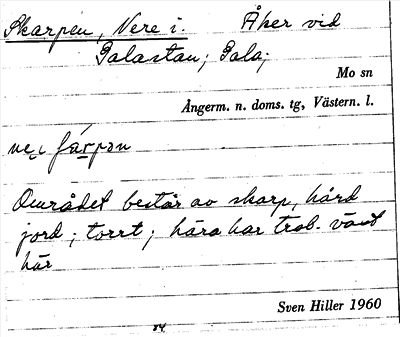 Skarpen, Nere i. Åker vid
Galastan; Gala;
Mo sn
Ångerm. n. doms. tg, Västern. l.
ne i
Området består av skarp, hård
jord; torrt; bara har trab.
här
Sven Hiller 1960